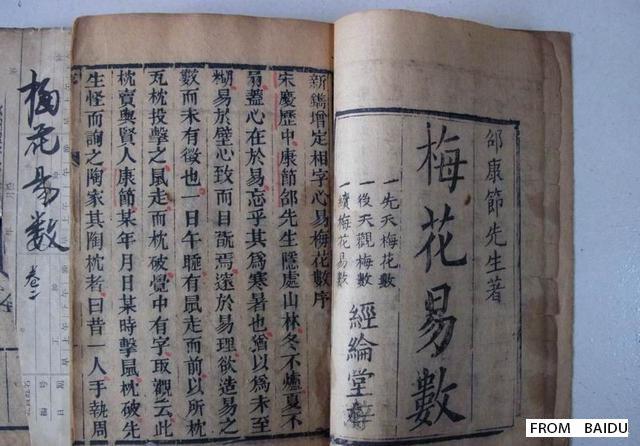 邵康節先生著
梅花易數
一先天梅花數
一後天觀梅數
一續梅花易數
經綸堂梓
新鐫增定相字心易梅花數序
宋慶歷中康節邵先生隱處山林冬不爐夏不
扇蓋心在於易忘乎其爲寒暑也猶以爲未至
糊易於壁心致而目翫焉邃於易理欲造易之
數而未有徵也一日午睡有鼠走而前以所枕
瓦枕投擊之鼠走而枕破覺中有字取觀云此
枕賣與賢人康節某年月日某時擊鼠枕破先
生怪而詢之陶家其陶枕者曰昔一人手執周
梅花易數
卷一
FROM BAIDU